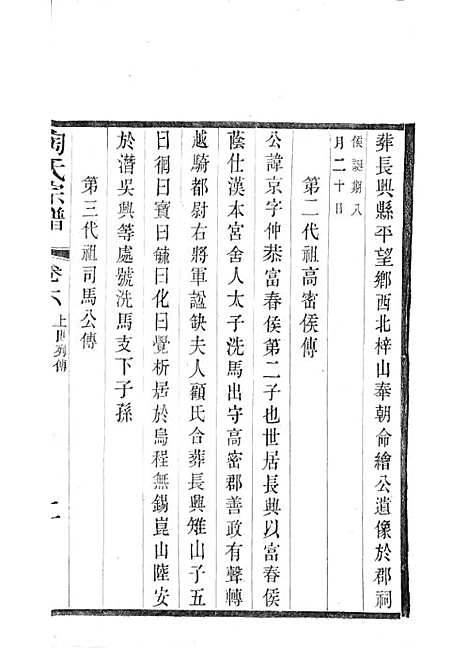 葬長興縣平望鄉西北梓山奉朝命繪公遺像於郡祠
侯誕期八
月二十日
第二代祖高密侯傳
公諱京字仲恭富春侯第二子也世居長興以富春侯
蔭仕漢本宮舍人太子洗馬出守高密郡善政有聲轉
越騎都尉右將軍諡缺夫人顧氏合葬長興雉山子五
曰衕曰寶曰毓曰化曰覺析居於烏程無錫崑山陸安
於潛吳興等處號洗馬支下子孫
第三代祖司馬公傳
氏宗譜
卷六
上世列傳